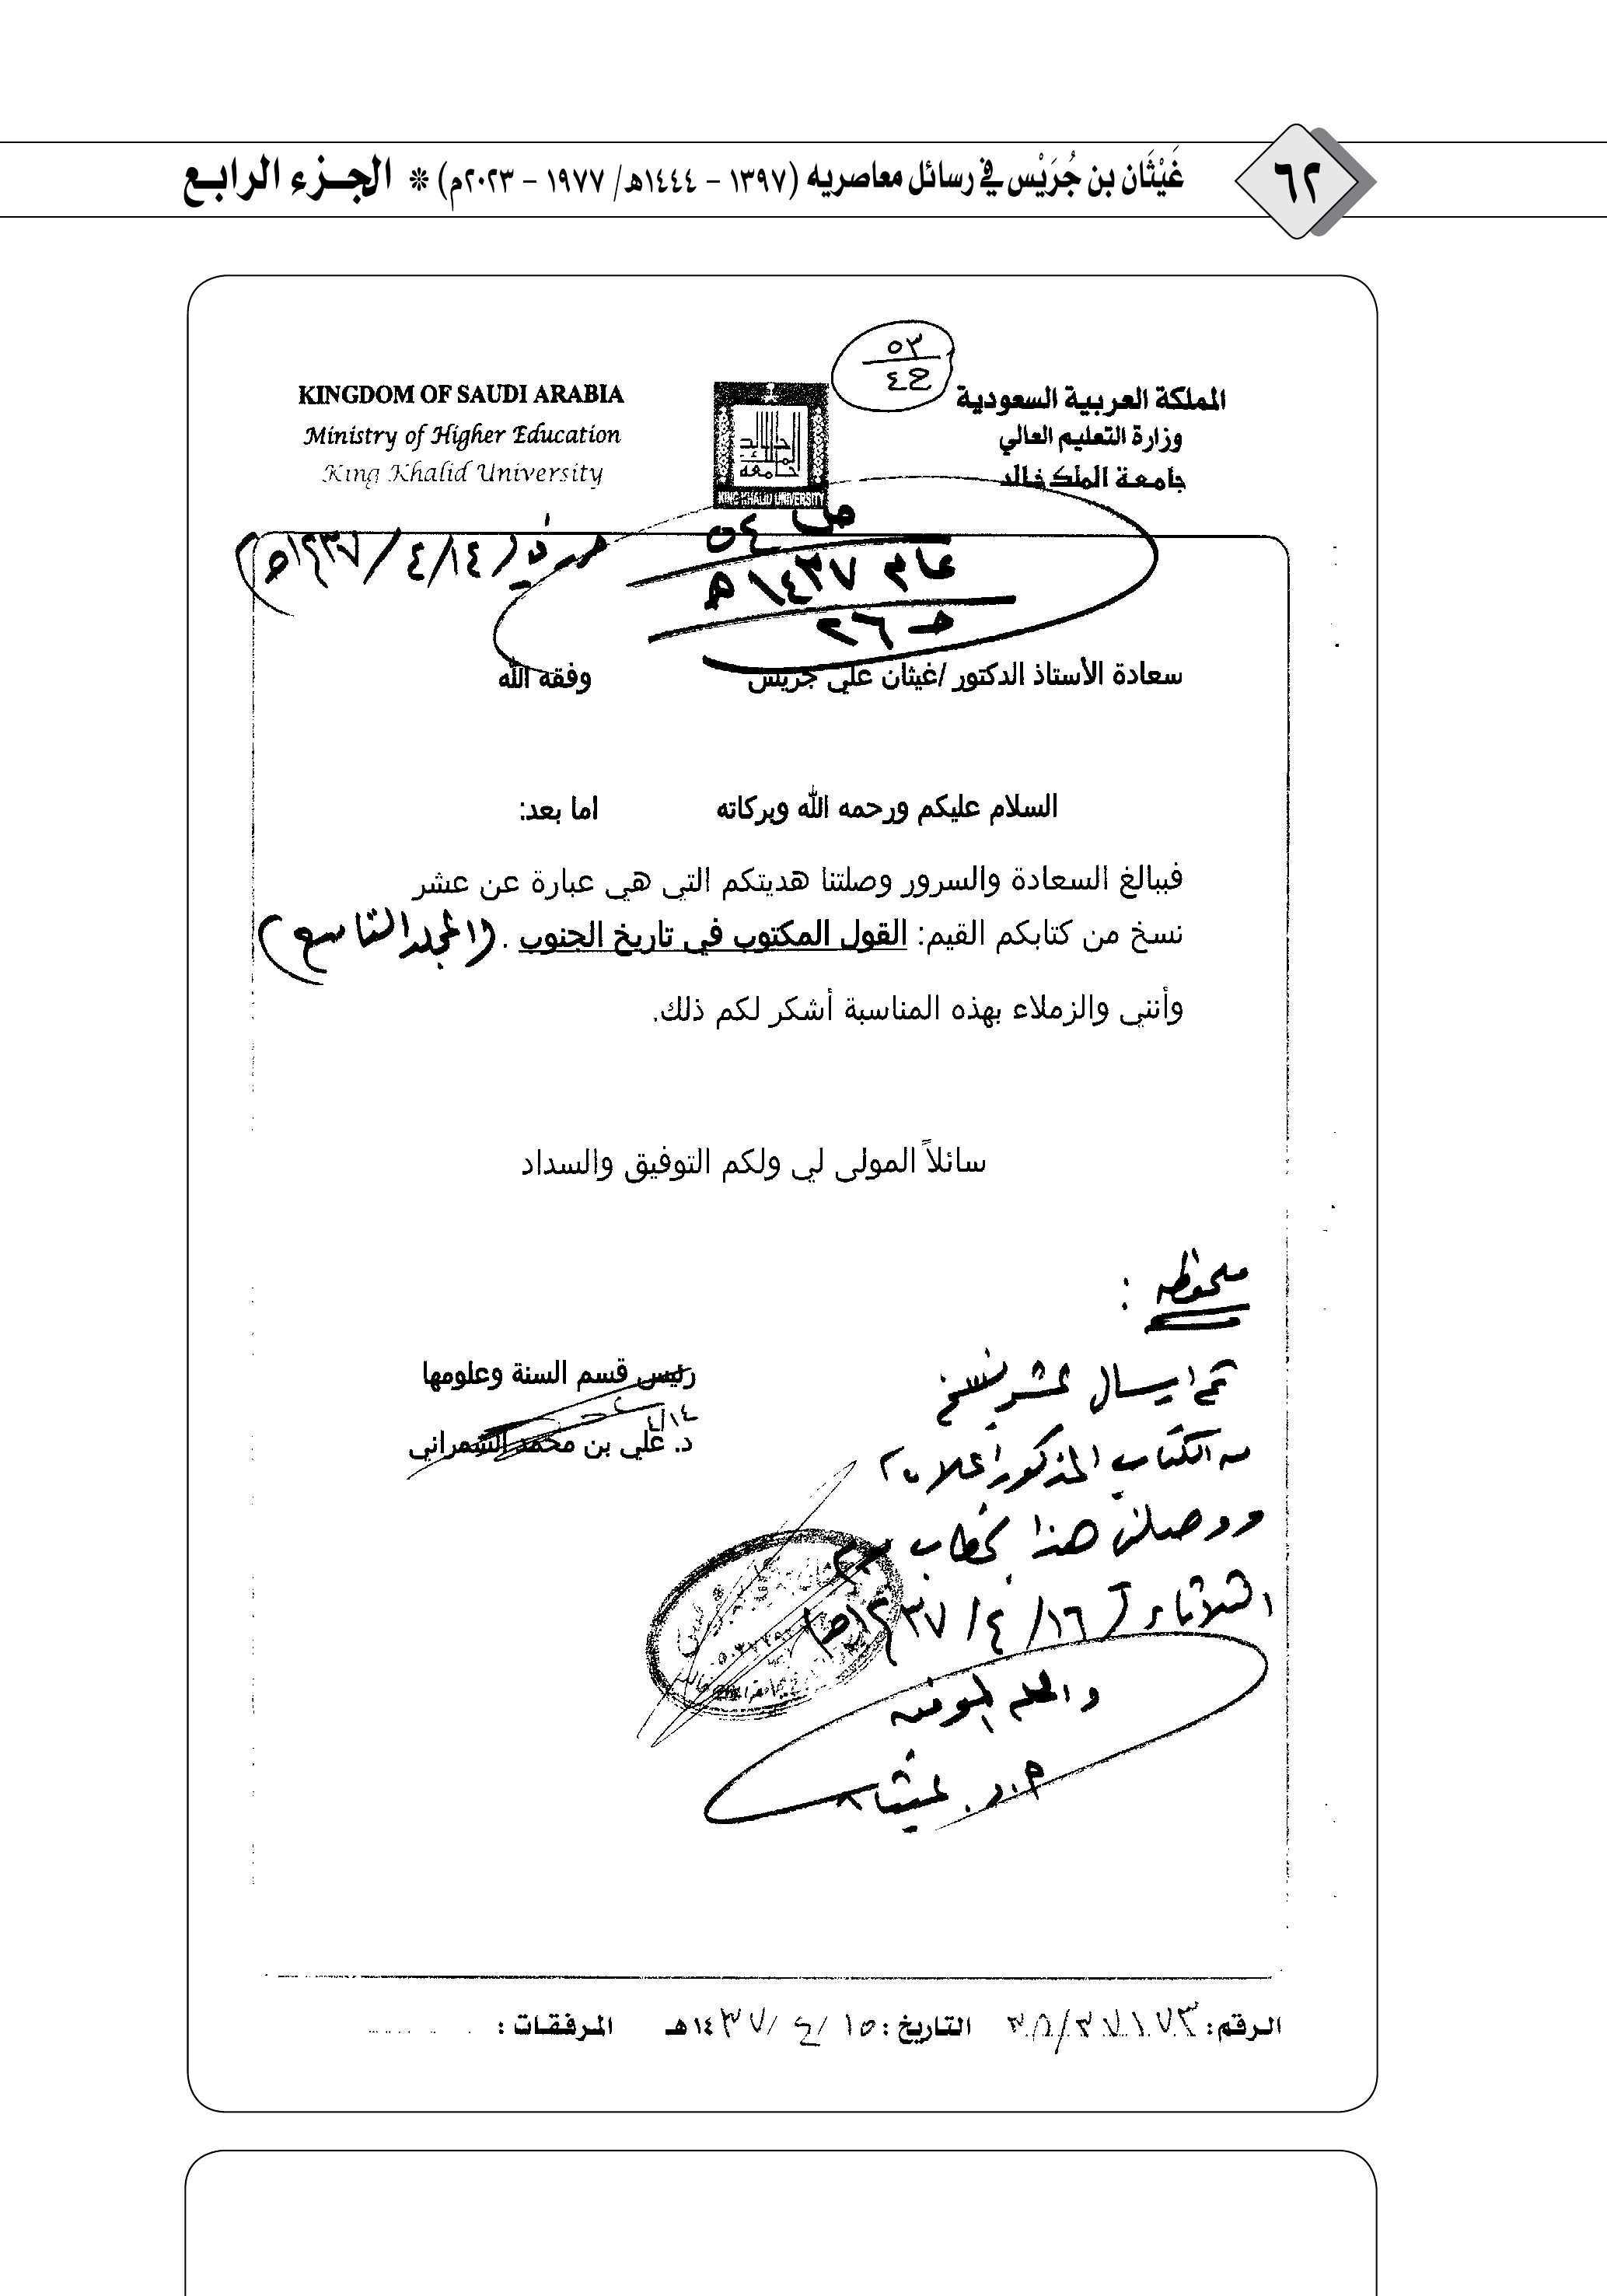 ٦٢
غَيْثَان بن جُرَيْس في رسائل معاصريه (١٣٩٧ - ١٤٤٤هـ/ ١٩٧٧ - ٢٠٢٣م) * الجزء الرابع
٥٣
٤ج
المملكة العربية السعودية
وزارة التعليم العالي
جامعة الملك خالد
KINGDOM OF SAUDI ARABIA
Ministry of Higher Education
King Khalid University
KING KHALID UNIVERSITY
ص ٥٤
عام ١٤٣٧هـ
حـ ٢٦
١٤/٤/١٤٣٧هـ)
سعادة الأستاذ الدكتور /غيثان علي جريس وفقه الله
السلام عليكم ورحمه الله وبركاته اما بعد:
فببالغ السعادة والسرور وصلتنا هديتكم التي هي عبارة عن عشر
نسخ من كتابكم القيم: القول المكتوب في تاريخ الجنوب . (المجلد التاسع)
وأنني والزملاء بهذه المناسبة أشكر لكم ذلك.
سائلاً المولى لي ولكم التوفيق والسداد
رئيس قسم السنة وعلومها
٤/١٤
د. علي بن محمد الشمراني
ملحوظه :
تم ارسال عشر نسخ
من الكتاب المذكور اعلاه ،
ووصلني هذا الخطاب يوم
الثلاثاء (١٦/٤/١٤٣٧هـ)
والله الموفق
أ.د. غيثان
الرقم: ٣٥/٣٧١٧٣ التاريخ: ١٥/٤/١٤٣٧هـ المرفقات :